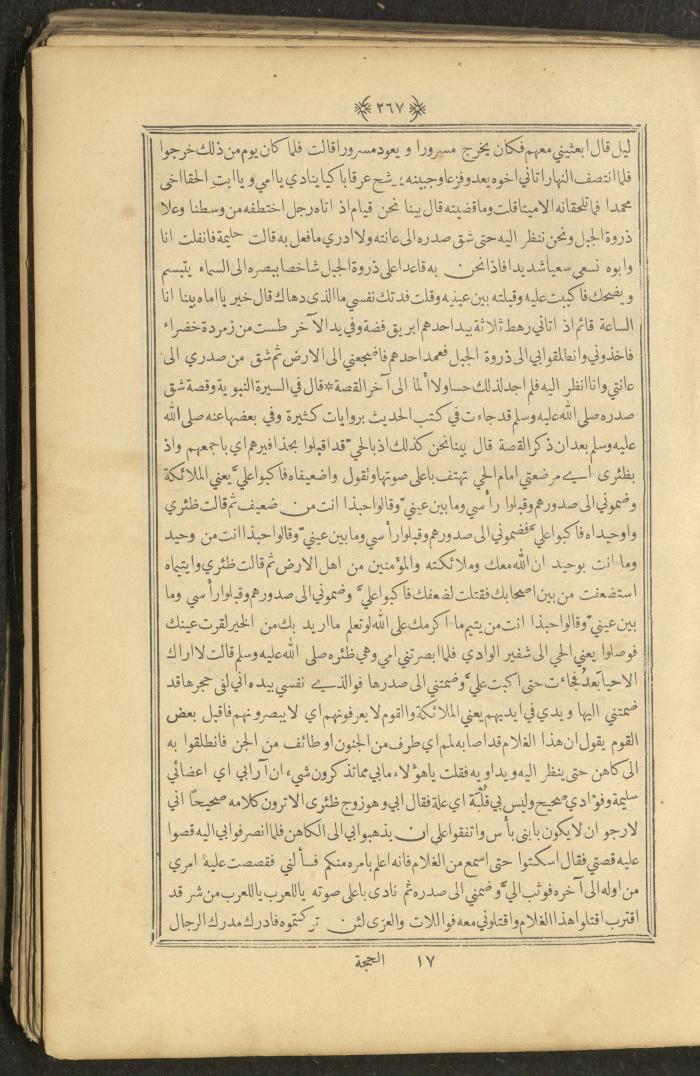 ٢٦٧
ليل قال ابعثيني معهم فكان يخرج مسرورا و يعود مسرورا قالت فلما كان يوم من ذلك خرجوا
فلما انتصف النهار اتاني اخوه يعدو فزعا وجبينه يرشح عرقا باكيا ينادي يا امي ويا ابت الحقا اخي
محمدا فما تلحقانه الا ميتا قلت وما قضيته قال بينا نحن قيام اذ اتاه رجل اختطفه من وسطنا وعلا
ذروة الجبل ونحن ننظر اليه حتى شق صدره الى عانته ولا ادري ما فعل به قالت حليمة فانفلت انا
وابوه نسعى سعيا شديدا فاذا نحن به قاعدا على ذروة الجبل شاخصا ببصره الى السماء يتبسم
ويضحك فاكببت عليه وقبلته بين عينيه وقلت فدتك نفسي ما الذى دهاك قال خير يا اماه بينا انا
الساعة قائم اذ اتاني رهط ثلاثة بيد احدهم ابريق فضة وفي يد الآخر طست من زمردة خضراء
فاخذوني وانطلقوا بي الى ذروة الجبل فعمد احدهم فاضجعني الى الارض ثم شق من صدري الى
عانتي وانا انظر اليه فلم اجد لذلك حسا ولا ألما الى آخر القصة * قال في السيرة النبوية وقصة شق
صدره صلى الله عليه وسلم قد جاءت في كتب الحديث بروايات كثيرة وفي بعضها عنه صلى الله
عليه وسلم بعد ان ذكر القصة قال بينا نحن كذلك اذ بالحي قد اقبلوا بحذافيرهم اي باجمعهم واذ
بظئرى اي مرضعتي امام الحي تهتف باعلى صوتها وتقول واضعيفاه فاكبوا عليَّ يعني الملائكة
وضموني الى صدورهم وقبلوا رأسي وما بين عينيّ وقالوا حبذا انت من ضعيف ثم قالت ظئري
واوحيداه فاكبوا عليَّ فضموني الى صدورهم وقبلوا رأسي وما بين عينيّ وقالوا حبذا انت من وحيد
وما انت بوحيد ان الله معك وملائكته والمؤمنين من اهل الارض ثم قالت ظئري وايتيماه
استضعفت من بين اصحابك فقتلت لضعفك فاكبوا عليَّ وضموني الى صدورهم وقبلوا رأسي وما
بين عينيّ وقالوا حبذا انت من يتيم ما اكرمك على الله لو تعلم ما اريد بك من الخير لقرت عينك
فوصلوا يعني الحي الى شفير الوادي فلما ابصرتني امي وهي ظئره صلى الله عليه وسلم قالت لا اراك
الا حيا بَعدُ فجاءت حتى اكبت عليَّ وضمتني الى صدرها فوالذي نفسي بيده اني لفي حجرها قد
ضمتني اليها ويدي في ايديهم يعني الملائكة والقوم لا يعرفونهم اي لا يبصرونهم فاقبل بعض
القوم يقول ان هذا الغلام قد اصابه لمم اي طرف من الجنون او طائف من الجن فانطلقوا به
الى كاهن حتى ينظر اليه ويداويه فقلت يا هؤلاء ما بي مما تذكرون شيء ان آرابي اي اعضائي
سليمة وفؤادي صحيح وليس بي قُلْبَة اي علة فقال ابي وهو زوج ظئرى الا ترون كلامه صحيحا اني
لارجو ان لا يكون بابني بأس واتفقوا على ان يذهبوا بي الى الكاهن فلما انصرفوا بي اليه قصوا
عليه قصتي فقال اسكتوا حتى اسمع من الغلام فانه اعلم بامره منكم فسألني فقصصت عليه امري
من اوله الى آخره فوثب اليَّ وضمني الى صدره ثم نادى باعلى صوته يا للعرب يا للعرب من شر قد
اقترب اقتلوا هذا الغلام واقتلوني معه فواللات والعزى لئن تركتموه فادرك مدرك الرجال
١٧ الحجة